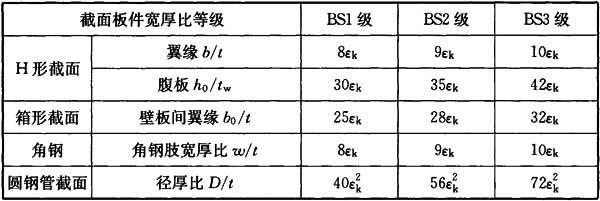 截面板件宽厚比等级 BS1 级 BS2 级 BS3 级
H 形截面 翼缘 b/t 8εk 9εk 10εk
腹板 h₀/tw 30εk 35εk 42εk
箱形截面 壁板间翼缘 b₀/t 25εk 28εk 32εk
角钢 角钢肢宽厚比 w/t 8εk 9εk 10εk
圆钢管截面 径厚比 D/t 40εk² 56εk² 72εk²